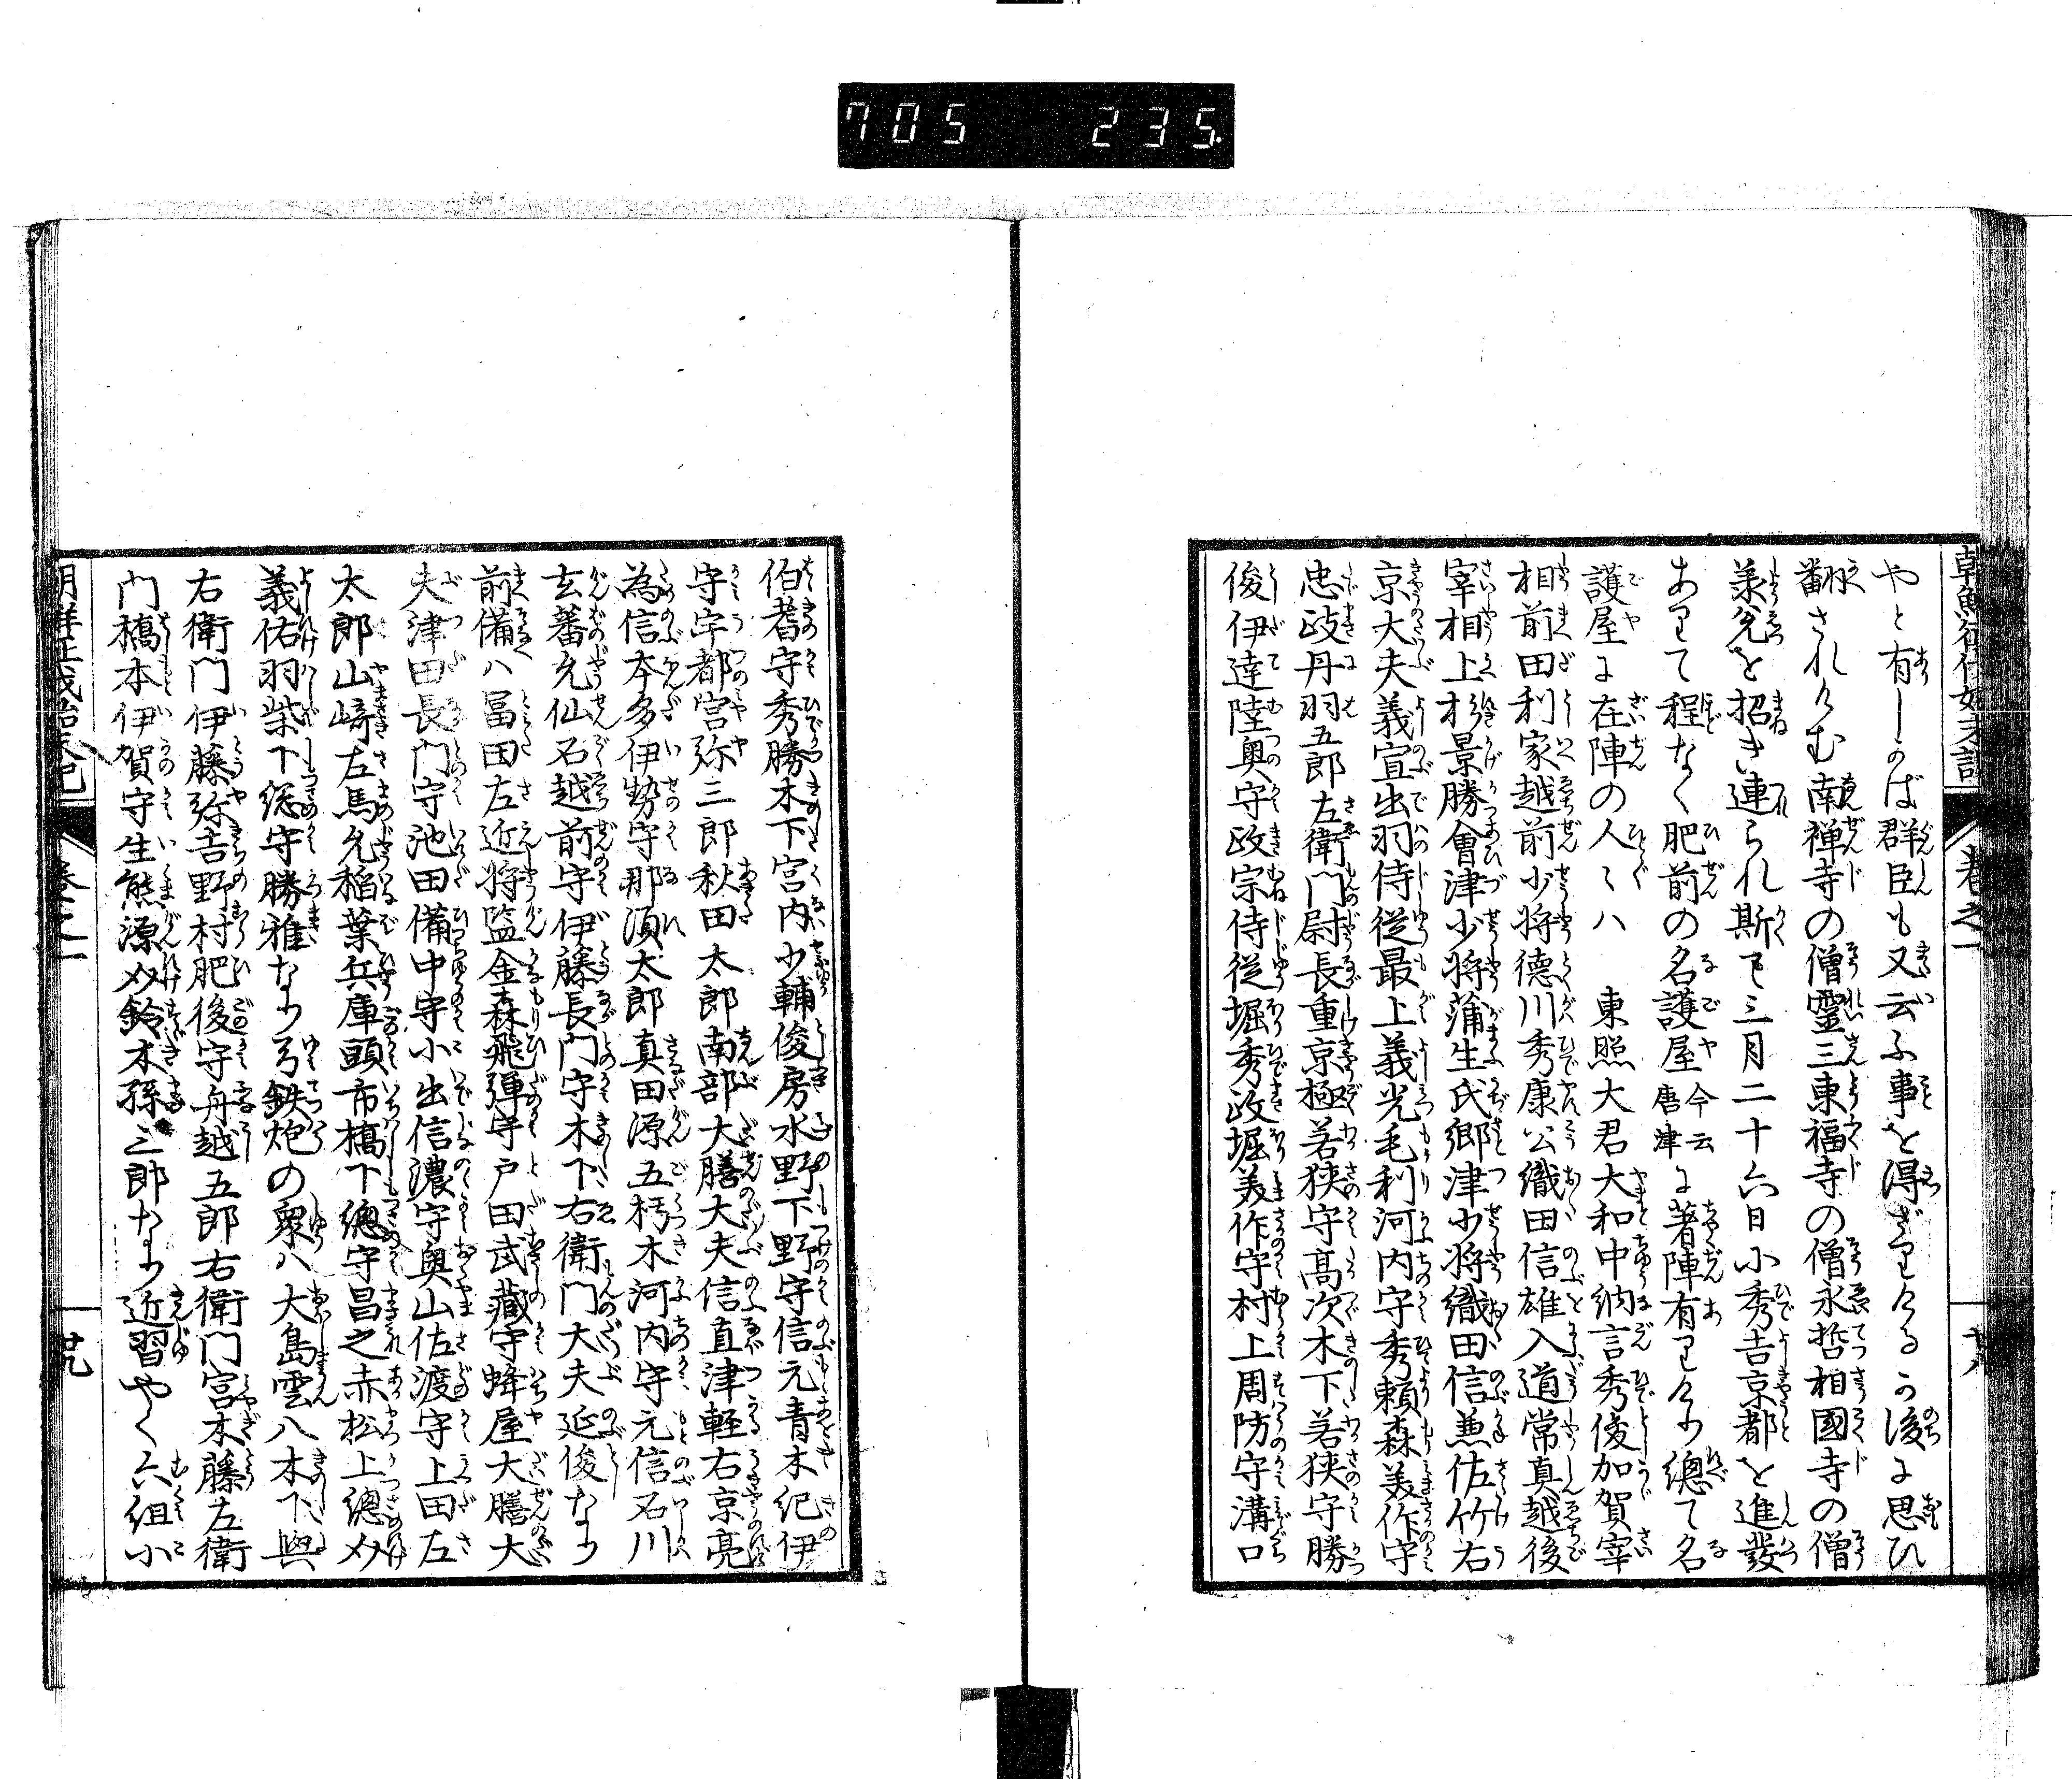 705 235
朝鮮征伐始末記 巻之一 廿八
やと有しかば群臣も又云ふ事を得ざりけるが後に思ひ
翻されけむ南禅寺の僧霊三東福寺の僧永哲相國寺の僧
承兌を招き連られ斯て三月二十六日小秀吉京都を進發
ありて程なく肥前の名護屋今云唐津に著陣有りけり總て名
護屋に在陣の人々ハ 東照大君大和中納言秀俊加賀宰
相前田利家越前少将徳川秀康公織田信雄入道常真越後
宰相上杉景勝會津少将蒲生氏郷津少将織田信兼佐竹右
京大夫義宣出羽侍従最上義光毛利河内守秀頼森美作守
忠政丹羽五郎左衛門尉長重京極若狭守高次木下若狭守勝
俊伊達陸奥守政宗侍従堀秀政堀美作守村上周防守溝口
伯耆守秀勝木下宮内少輔俊房水野下野守信元青木紀伊
守宇都宮弥三郎秋田太郎南部大膳大夫信直津軽右京亮
為信本多伊勢守那須太郎真田源五朽木河内守元信石川
玄蕃允仙石越前守伊藤長門守木下右衛門大夫延俊なり
前備ハ冨田左近将監金森飛彈守戸田武蔵守蜂屋大膳大
夫津田長門守池田備中守小出信濃守奥山佐渡守上田左
太郎山﨑左馬允稲葉兵庫頭市橋下總守昌之赤松上總介
義佑羽柴下総守勝雅なり弓鉄炮の衆ハ大島雲八木下與
右衛門伊藤弥吉野村肥後守舟越五郎右衛門宮木藤左衛
門橋本伊賀守生熊源介鈴木孫三郎なり近習やく六組小
朝鮮征伐始末記 巻之一 廿九